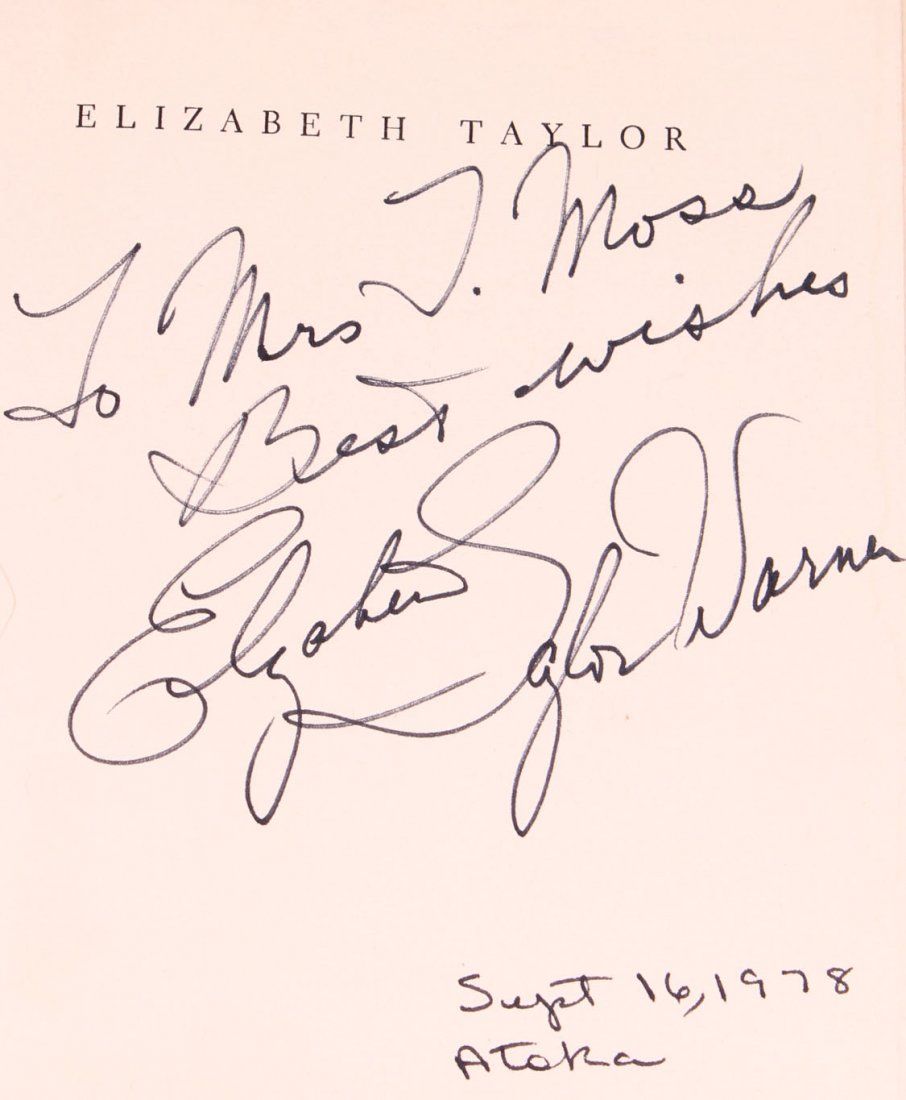 ELIZABETH TAYLOR
To Mrs T. Moss
Best wishes
Elizabeth Taylor Warner
Sept 16, 1978
Atoka